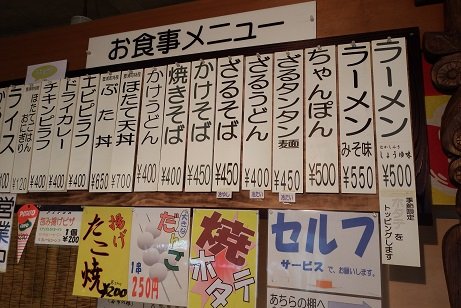 お食事メニュー
ラーメン
しょうゆ味
¥500
ラーメン
みそ味
¥550
ちゃんぽん
¥500
ざるタンタン
麦面
¥450
ざるうどん
¥400
ざるそば
¥450
かけそば
¥450
焼きそば
¥400
かけうどん
¥400
ほたて天丼
¥700
ぶた丼
¥650
エビピラフ
ドライカレー
¥400
チキンピラフ
¥400
ほたてごはん
おにぎり
¥120
ライス
季節限定
ホタテを
トッピングします
営業中
包み揚げピザ
1個 ¥200
揚げ
たこ焼
¥200
だんご
1串
250円
焼
ホタテ
セルフ
サービスで、お願いします。
あちらの棚へ